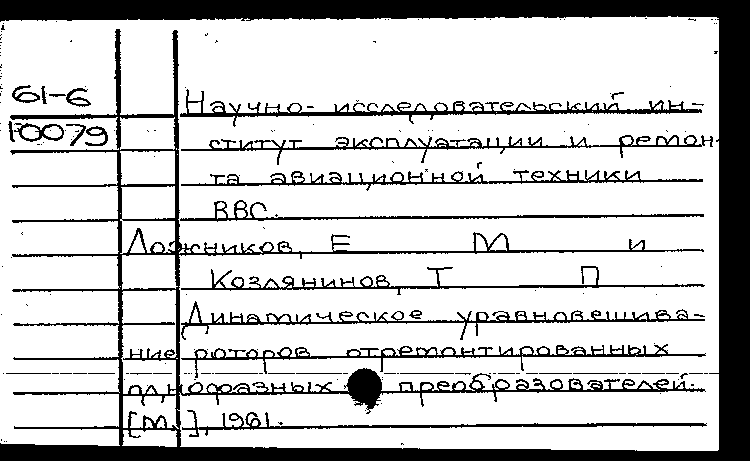 61-6
10079
Научно-исследовательский ин-
ститут эксплуатации и ремон-
та авиационной техники
ВВС.
Ложников, Е М и
Козлянинов, Т П
Динамическое уравновешива-
ние роторов отремонтированных
однофазных преобразователей.
[М.], 1961.